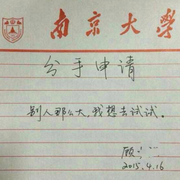 南京大学
分手申请
别人那么大,我想去试试.
顾
2015.4.16